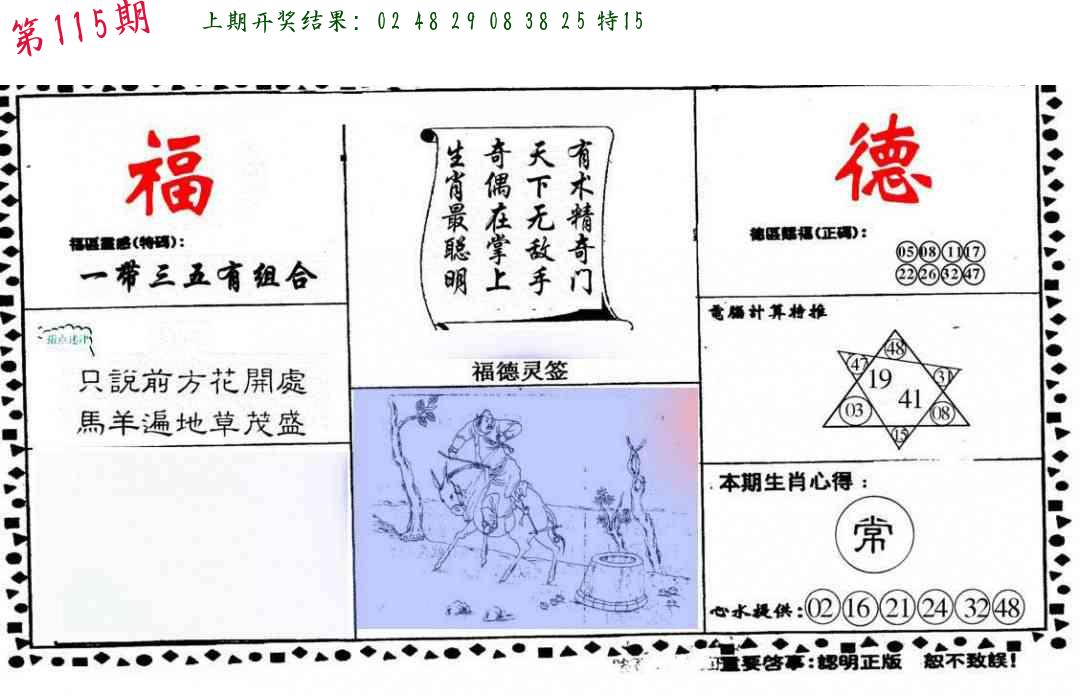 第115期
上期开奖结果：02 48 29 08 38 25 特15
福
福區靈感(特碼)：
一帶三五有组合
只說前方花開處
馬羊遍地草茂盛
有术精奇门
天下无敌手
奇偶在掌上
生肖最聪明
福德灵签
德
德區賜福(正碼)：
05 08 11 17
22 26 32 47
電腦計算特推
48
47 19 31
41
03 08
15
本期生肖心得：
常
心水提供：02 16 21 24 32 48
重要啓事：認明正版 恕不致誤！